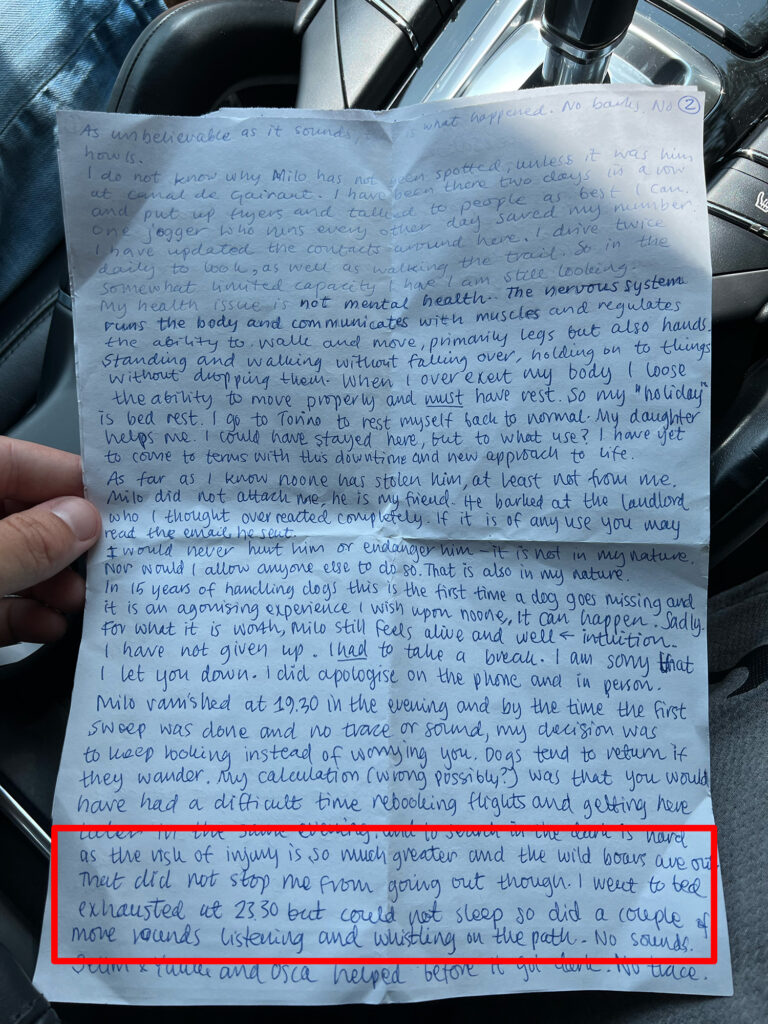 As unbelievable as it sounds, is what happened. No barks, No ②
howls.
I do not know why Milo has not been spotted, unless it was him
at canal de Gairaut. I have been there two days in a row
and put up flyers and talked to people as best I can.
One jogger who runs every other day saved my number.
I have updated the contacts around here. I drive twice
daily to look, as well as walking the trail. So in the
somewhat limited capacity I have I am still looking.
My health issue is not mental health. The nervous system
runs the body and communicates with muscles and regulates
the ability to walk and move, primarily legs but also hands.
Standing and walking without falling over, holding on to things
without dropping them. When I over exert my body I loose
the ability to move properly and must have rest. So my "holiday"
is bed rest. I go to Torino to rest myself back to normal. My daughter
helps me. I could have stayed here, but to what use? I have yet
to come to terms with this downtime and new approach to life.
As far as I know noone has stolen him, at least not from me.
Milo did not attack me, he is my friend. He barked at the landlord
who I thought overreacted completely. If it is of any use you may
read the email he sent.
I would never hurt him or endanger him - it is not in my nature.
Nor would I allow anyone else to do so. That is also in my nature.
In 15 years of handling dogs this is the first time a dog goes missing and
it is an agonising experience I wish upon noone. It can happen. Sadly.
For what it is worth, Milo still feels alive and well ← intuition.
I have not given up. I had to take a break. I am sorry that
I let you down. I did apologise on the phone and in person.
Milo vanished at 19.30 in the evening and by the time the first
sweep was done and no trace or sound, my decision was
to keep looking instead of worrying you. Dogs tend to return if
they wander. My calculation (wrong possibly?) was that you would
have had a difficult time rebooking flights and getting here
later in the same evening, and to search in the dark is hard
as the risk of injury is so much greater and the wild boars are out.
That did not stop me from going out though. I went to bed
exhausted at 23.30 but could not sleep so did a couple of
more rounds listening and whistling on the path. No sounds.
and Osca helped before it got dark. No trace.